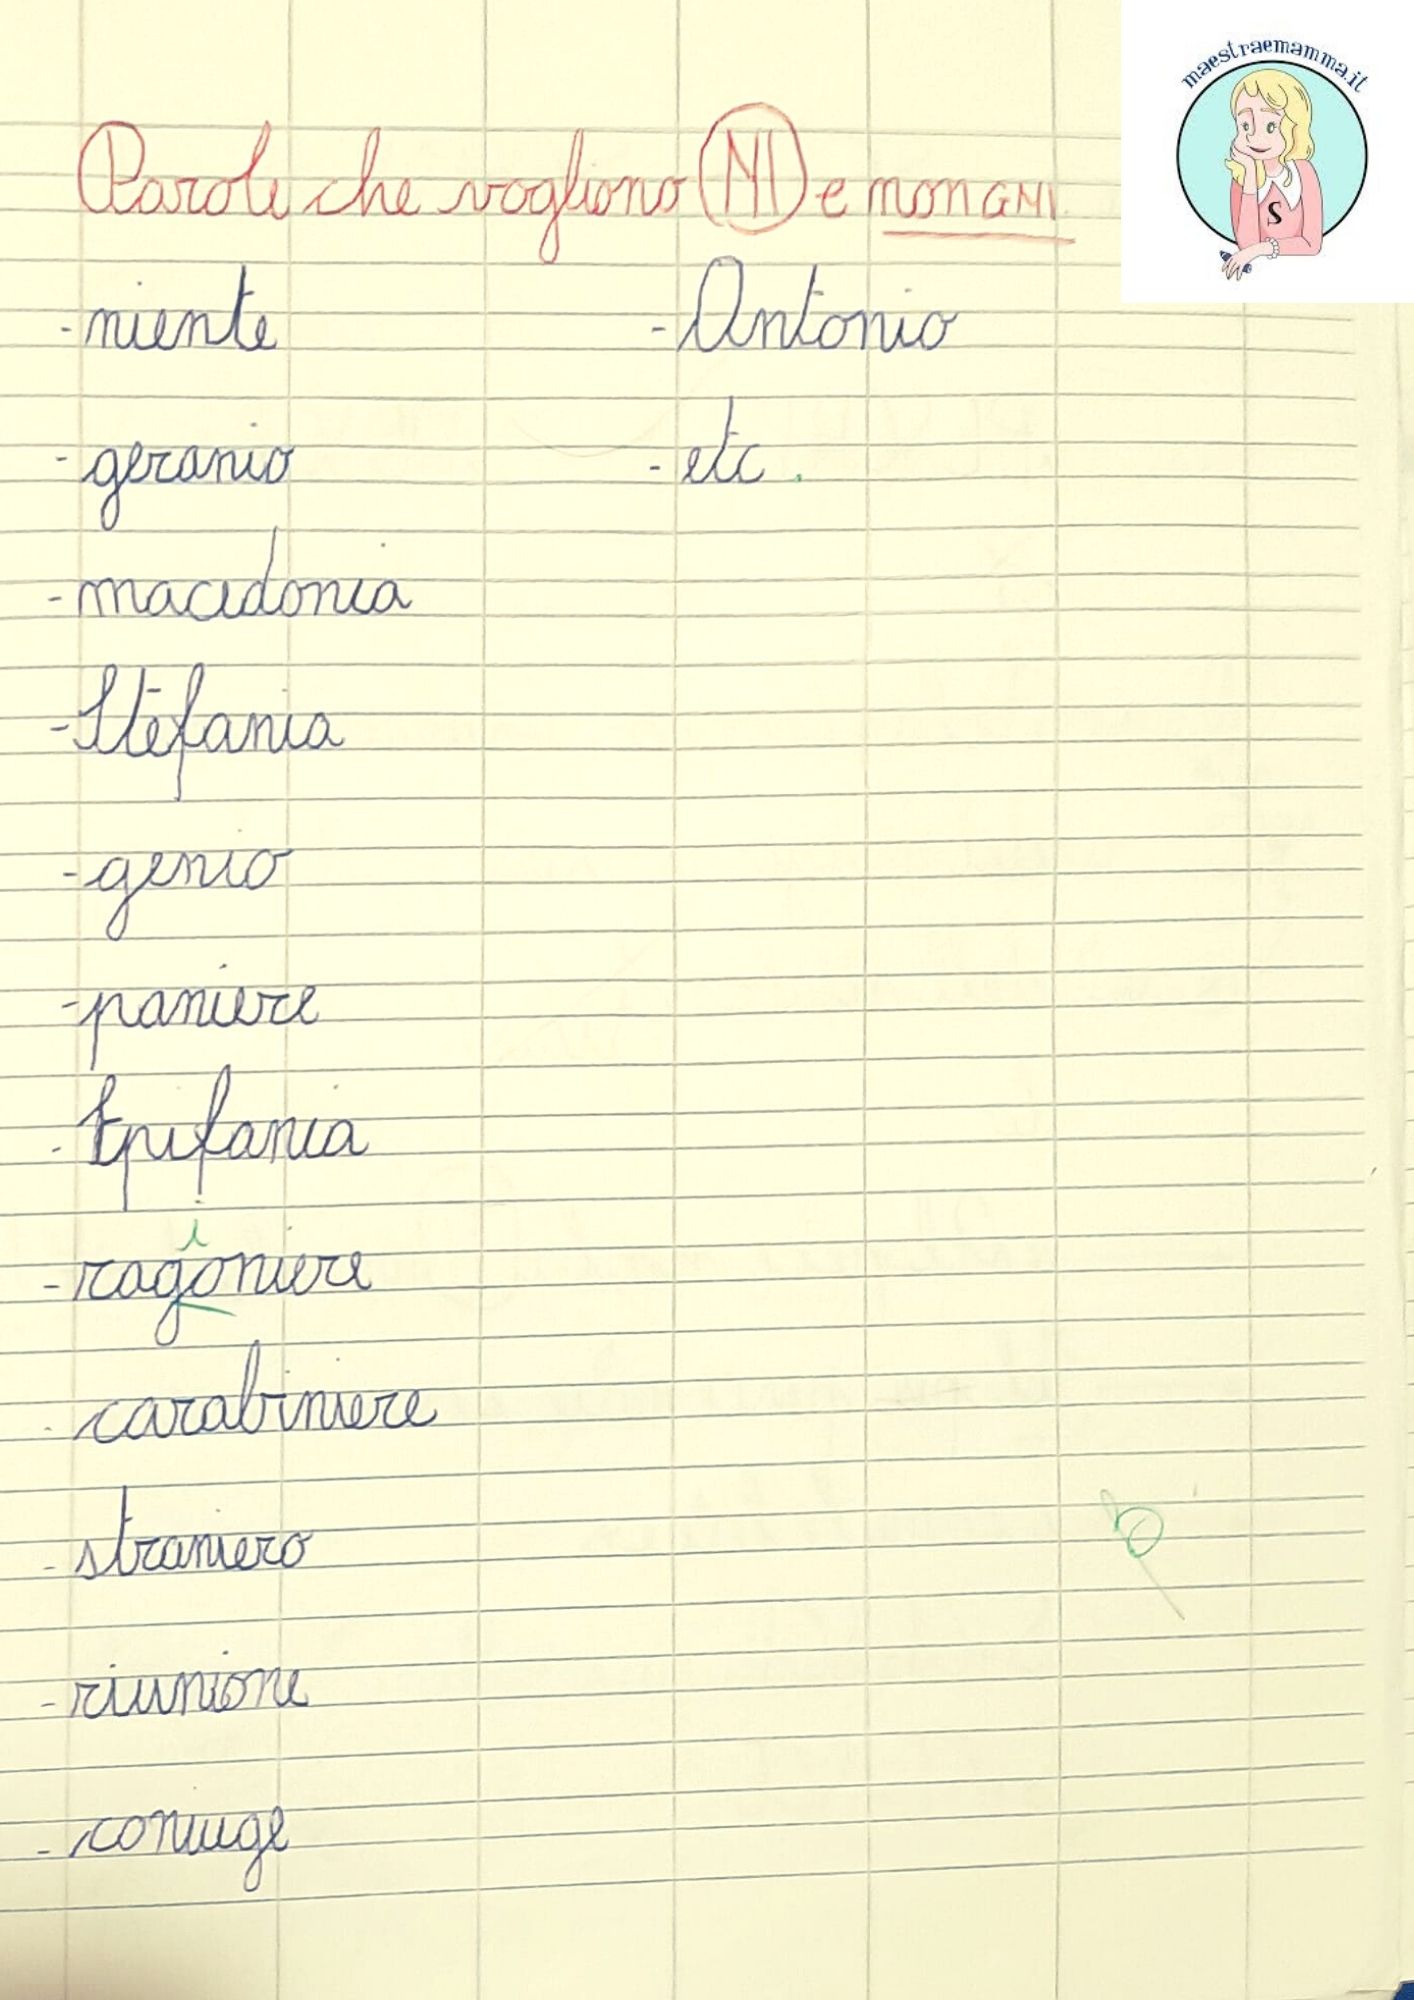 maestraemamma.it
S
Parole che vogliono NI e non GNI.
- niente
- geranio
- macedonia
- Stefania
- genio
- paniere
- Epifania
i
- ragoniere
- carabiniere
- straniero
- riunione
- coniuge
- Antonio
- etc.